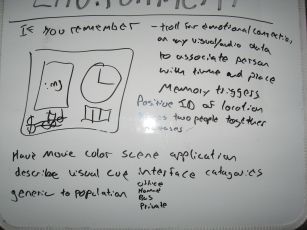 ENVIRONMENT
If you remember
- troll for emotional connection
on any visual/audio data
to associate person
with time and place
img
Memory triggers
Positive ID of location
two people together
Have movie color scene application
describe visual cue interface categories
generic to population
office
Home
Bus
Private